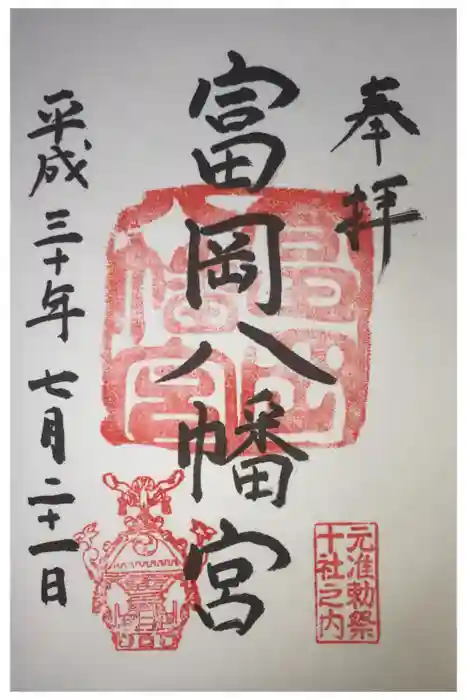 奉拝
富岡八幡宮
平成三十年七月二十一日
富岡
八幡宮
元准勅祭
十社之内